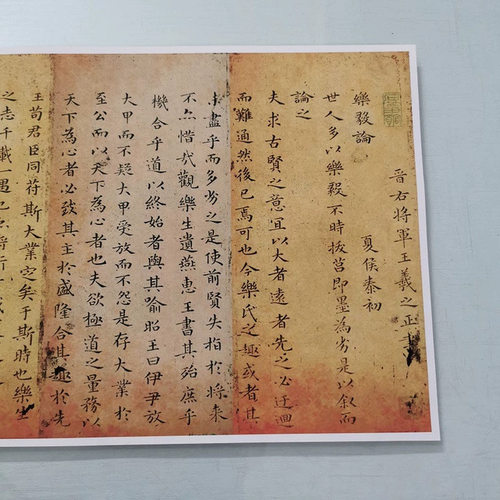 晉右將軍王羲之正書
樂毅論
夏侯泰初
世人多以樂毅不時拔莒即墨為劣是以敘而
論之
夫求古賢之意宜以大者遠者先之必迂迴
而難通然後已焉可也今樂氏之趣或者其
未盡乎而多劣之是使前賢失指於將來
不亦惜哉觀樂生遺燕惠王書其殆庶乎
機合乎道以終始者與其喻昭王曰伊尹放
大甲而不疑大甲受放而不怨是存大業於
至公而以天下為心者也夫欲極道之量務以
天下為心者必致其主於盛隆合其趣於先
王苟君臣同符斯大業定矣于斯時也樂生
之志千載一遇也